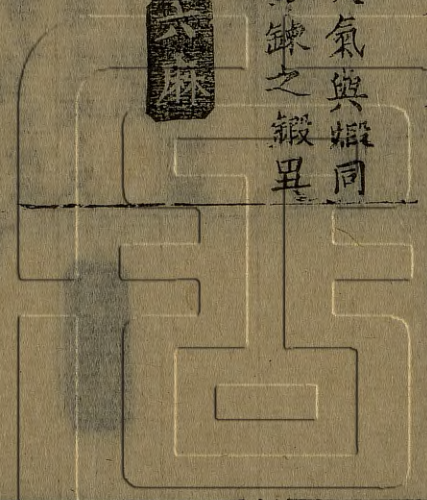 氣與煅同
鍊之鍛異
六麻